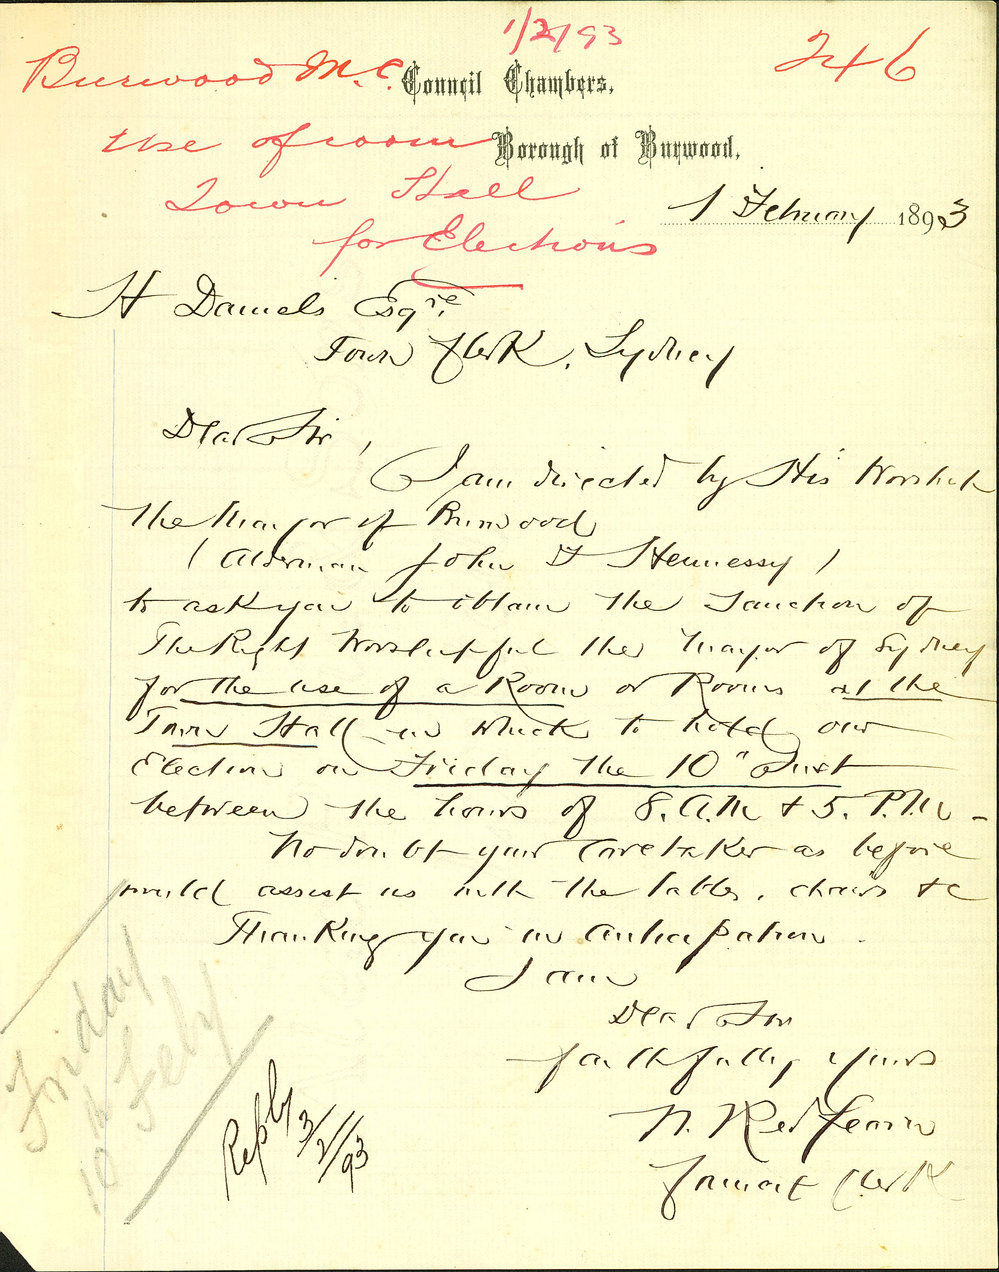 1/2/93
246
Burwood M.C.
Council Chambers,
Use of room
Borough of Burwood,
Town Hall
1 February 1893
for Elections
H Daniels Esqre.
Town Clerk, Sydney
Dear Sir,
I am directed by His Worship
the Mayor of Burwood
(Alderman John F Hennessy)
to ask you to obtain the sanction of
The Right Worshipful the Mayor of Sydney
for the use of a Room or Rooms at the
Town Hall in which to hold our
Election on Friday the 10" Inst
between the hours of 8. A.M & 5. P.M -
No doubt your Caretaker as before
would assist us with the tables, chairs &c
Thanking you in anticipation.
I am
Dear Sir
faithfully yours
N. Redfearn
Council Clerk
Friday
10th Feby
Reply 3/2/93